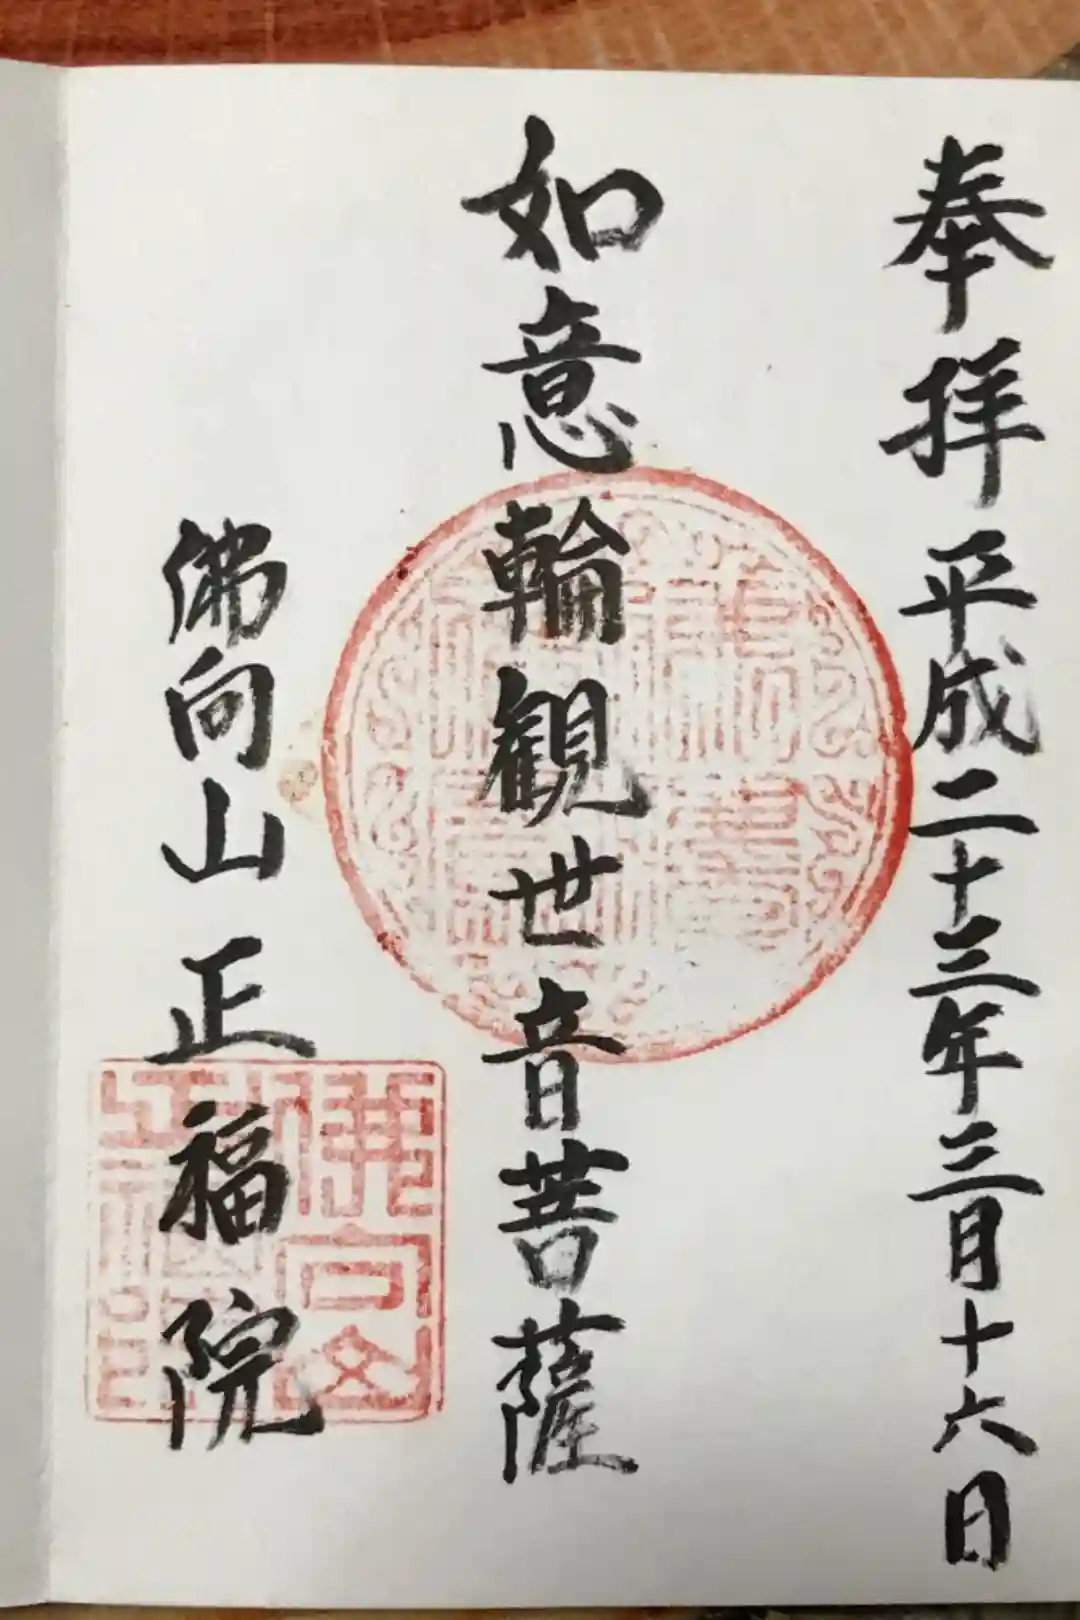 奉拝 平成二十三年三月十六日
如意輪観世音菩薩
佛向山 正福院